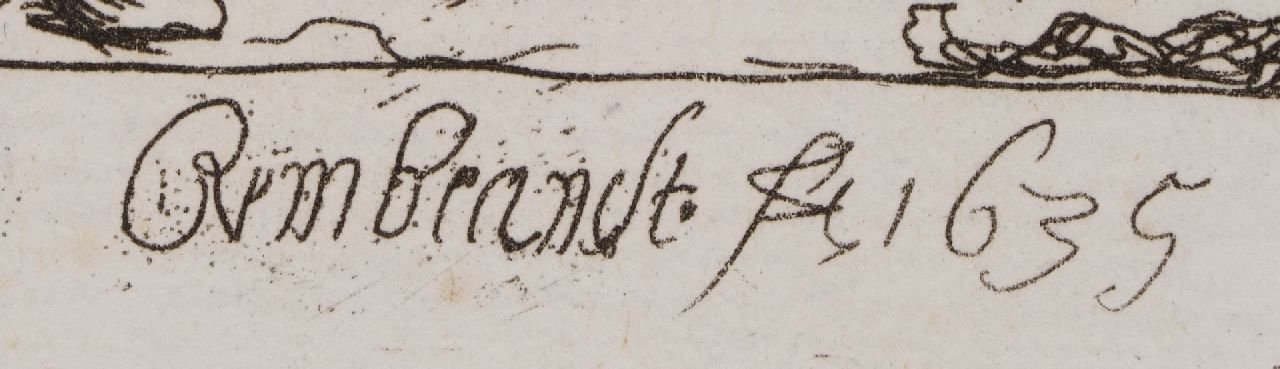 Rembrandt. f. 1635